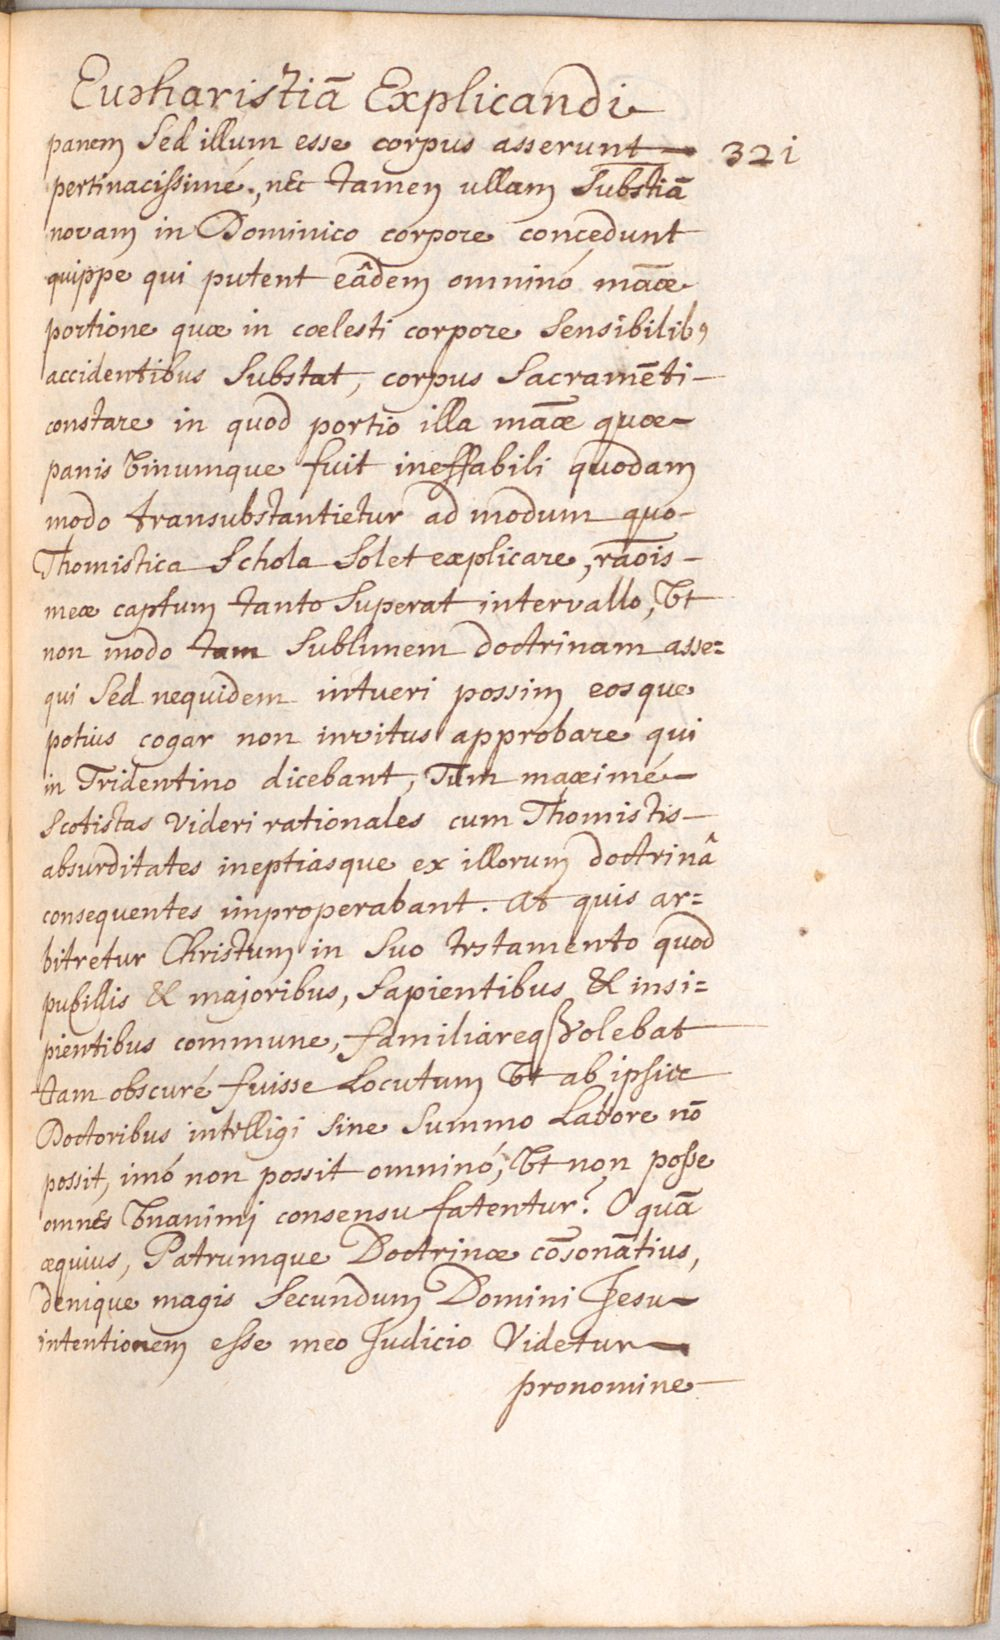 Eucharistiā Explicandi
panem Sed illum esse corpus asserunt
321
pertinacissimé., nec tamen ullam Substiā
novam in Dominico corpore concedunt
quippe qui putent eâdem omninó māæ
portione quæ in cœlesti corpore Sensibilibꝰ
accidentibus Substat, corpus Sacramēti
constare in quod portio illa māæ quæ
panis Vinumque fuit ineffabili quodam
modo transubstantietur ad modum quo
Thomistica Schola Solet explicare, rāois
meæ captum tanto Superat intervallo, Vt
non modo tam Sublimem doctrinam asse=
qui Sed nequidem intueri possim eosque
potius cogar non invitus approbare qui
in Tridentino dicebant, Tum maximé
Scotistas Videri rationales cum Thomistis
absurditates ineptiasque ex illorum doctrinâ
consequentes improperabant. At quis ar=
bitretur Christum in Suo testamento quod
pusillis & majoribus, Sapientibus & insi=
pientibus commune, familiareqꝫ Volebat
tam obscuré fuisse Locutum Vt ab ipsis
Doctoribus intelligi Sine Summo Labore nō
possit, imó non possit omninó, Vt non posse
omnes Vnanimi consensu fatentur? O quā
æquius, Patrumque Doctrinæ cōsonātius,
denique magis Secundum Domini Jesu
intentionem esse meo Judicio Videtur
pronomine